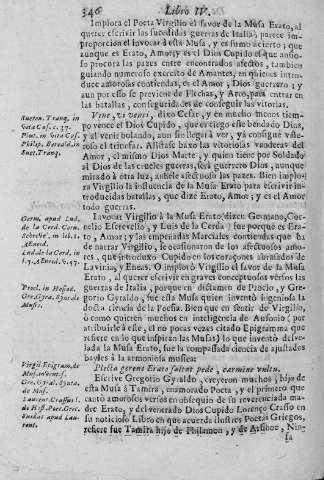 346 Libro IV.
Implora el Poeta Virgilio el favor de la Musa Erato, al
querer escrivir las sucedidas guerras de Italia; parece im-
proporcion el invocar à esta Musa, y es sumo acierto; que
aunque es Erato, Amor; y es el Dios Cupido el que ansio-
so procura las pazes entre encontrados afectos, tambien
guiando numeroso exercito de Amantes, en quienes intro-
duce amorosas contiendas, es el Amor, Dios guerrero; y
aun por esso se previene de Flechas, y Arco, para entrar en
las batallas, con seguridades de conseguir las vitorias.
Sueton. Tranq. in
vita Cæs. c. 37.
Plut. in vita Cæs.
Philip. Beroald. in
Suet. Tranq.
Vine, vi venci, dixo Cesar, y en mucho menos tiem-
po vence el Dios Cupido, que es ciego esse bendado Dios,
y al venir bolando, aun sin llegar à ver, yà consigue vale-
roso el triunfar. Alistase baxo las vitoriosas vanderas del
Amor, el mismo Dios Marte, y quien tiene por Soldado
al Dios de las crueles guerras, serà guerrero Dios, aunque
mirado à otra luz, anhele afectuoso las pazes. Bien implo-
ra Virgilio la influencia de la Musa Erato para escrivir in-
troducidas batallas, que dize Erato, Amor; y es el Amor
todo guerras.
Germ. apud Lud.
de la Cerd. Corn.
Screbelie', in lib. 7.
Æneid.
Lud. de la Cerd. in
l. 7. Æneid. v. 37.
Invocar Virgilio à la Musa Erato, dizen Germano, Cor-
nelio Escrevelio, y Luis de la Cerda; fue porque es Era-
to, Amor; y las empeñadas Marciales contiendas que ha
de narrar Virgilio, le ocasionaron de los afectuosos amo-
res, que introduxo Cupido en los coraçones abrasados de
Lavinia, y Eneas. O imploró Virgilio el favor de la Musa
Erato, al querer escrivir en graves conceptuosos versos las
guerras de Italia, porque en dictamen de Proclo, y Grego-
rio Gyraldo, fue esta Musa quien inventó ingeniosa la
Procl. in Hesiod.
Gre. Gyra. Synt. de
Musis.
docta ciencia de la Poesia. Bien que en sentir de Virgilio,
ò como quieren muchos en inteligencia de Ausonio (por
atribuirle à este, el no pocas vezes citado Epigramma que
refiere en lo que inspiran las Musas) lo que inventó desve-
lada la Musa Erato, fue la compassada ciencia de ajustados
bayles à la armoniosa musica:
Virgil. Epigram. de
Mus. invent.
Gre. Gyral. Synta.
de Mus.
Laurent. Crassus l.
de Hist. Poet. Grec.
Suidas apud Lau-
rent.
Plectra gerens Erato saltat pede, carmine vultu.
Escrive Gregorio Gyraldo, creyeron muchos, hija de
esta Musa à Tamira, enamorado Poeta, y el primero que
cantó amorosos versos en obsequio de su reverenciada ma-
dre Erato, y del venerado Dios Cupido. Lorenzo Crasso en
su noticioso Libro en que acuerda ilustres Poetas Griegos,
refiere fue Tamira hijo de Philamon, y de Arsinoe, Nin-
fa